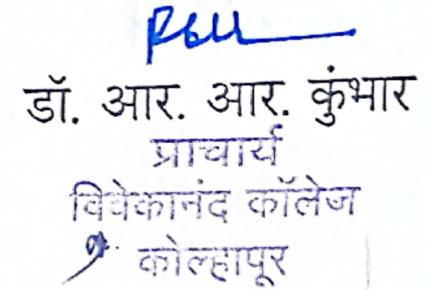 डॉ. आर. आर. कुंभार
प्राचार्य
विवेकानंद कॉलेज
कोल्हापूर